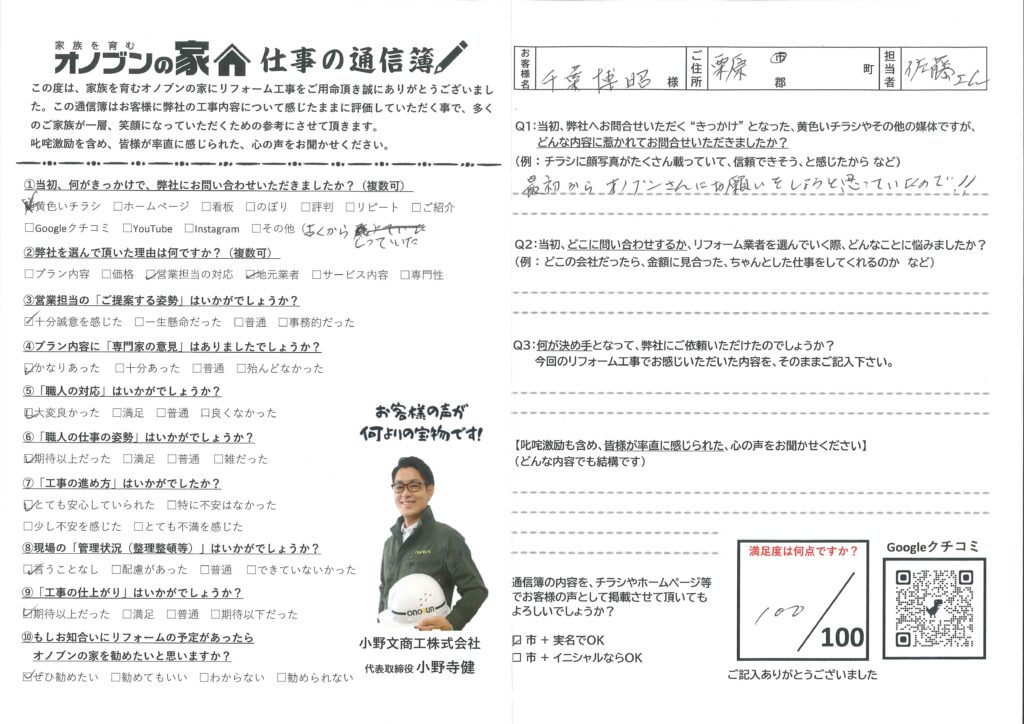 家族を育む
オノブンの家 仕事の通信簿
この度は、家族を育むオノブンの家にリフォーム工事をご用命頂き誠にありがとうございまし
た。この通信簿はお客様に弊社の工事内容について感じたままに評価していただく事で、多く
のご家族が一層、笑顔になっていただくための参考にさせて頂きます。
叱咤激励を含め、皆様が率直に感じられた、心の声をお聞かせください。
①当初、何がきっかけで、弊社にお問い合わせいただきましたか？（複数可）
☑黄色いチラシ □ホームページ □看板 □のぼり □評判 □リピート □ご紹介
□Googleクチコミ □YouTube □Instagram □その他 (古くから
とっていた
②弊社を選んで頂いた理由は何ですか？（複数可）
□プラン内容 □価格 ☑営業担当の対応 ☑地元業者 □サービス内容 □専門性
③営業担当の「ご提案する姿勢」はいかがでしょうか？
☑十分誠意を感じた □一生懸命だった □普通 □事務的だった
④プラン内容に「専門家の意見」はありましたでしょうか？
☑かなりあった □十分あった □普通 □殆んどなかった
⑤「職人の対応」はいかがでしょうか？
☑大変良かった □満足 □普通 □良くなかった
⑥「職人の仕事の姿勢」はいかがでしょうか？
☑期待以上だった □満足 □普通 □雑だった
⑦「工事の進め方」はいかがでしたか？
☑とても安心していられた □特に不安はなかった
□少し不安を感じた □とても不満を感じた
⑧現場の「管理状況（整理整頓等）」はいかがでしょうか？
☑言うことなし □配慮があった □普通 □できていないかった
⑨「工事の仕上がり」はいかがでしょうか？
☑期待以上だった □満足 □普通 □期待以下だった
⑩もしお知合いにリフォームの予定があったら
オノブンの家を勧めたいと思いますか？
☑ぜひ勧めたい □勧めてもいい □わからない □勧められない
お客様の声が
何よりの宝物です!
onobun
小野文商工株式会社
代表取締役 小野寺健
お客様名 千葉博昭 様 ご住所 栗原 市 郡 町 担当者 佐藤さん
Q1：当初、弊社へお問合せいただく“きっかけ”となった、黄色いチラシやその他の媒体ですが、
どんな内容に惹かれてお問合せいただきましたか？
（例：チラシに顔写真がたくさん載っていて、信頼できそう、と感じたから など）
最初から オノブンさんにお願いをしようと思っていたので!!
Q2：当初、どこに問い合わせするか、リフォーム業者を選んでいく際、どんなことに悩みましたか？
（例：どこの会社だったら、金額に見合った、ちゃんとした仕事をしてくれるのか など）
Q3：何が決め手となって、弊社にご依頼いただけたのでしょうか？
今回のリフォーム工事でお感じいただいた内容を、そのままご記入下さい。
【叱咤激励も含め、皆様が率直に感じられた、心の声をお聞かせください】
（どんな内容でも結構です）
通信簿の内容を、チラシやホームページ等
でお客様の声として掲載させて頂いても
よろしいでしょうか？
☑ 市 + 実名でOK
□ 市 + イニシャルならOK
満足度は何点ですか？
100/100
Googleクチコミ
ご記入ありがとうございました